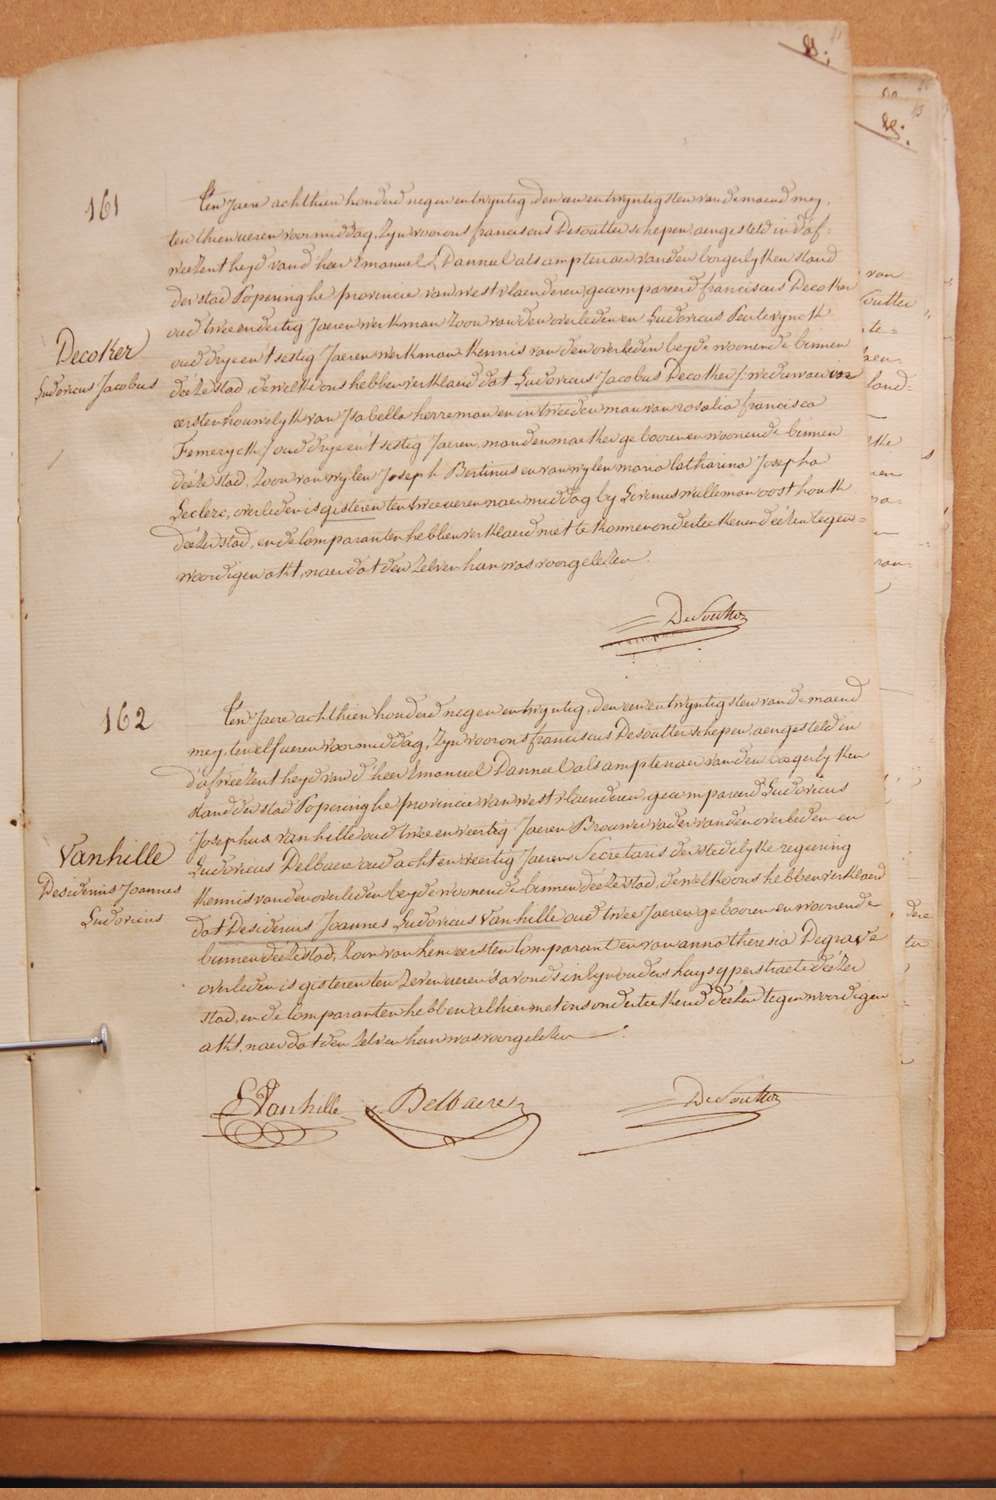 161
Ten Jaere achthien honderd negen en twyntig, den een en twyntigsten van de maend mey,
ten thien ueren voormiddag, Zyn voor ons franciscus Desoutter schepen, aengesteld in d'af=
weezentheyd van d'heer Emanuel Danneel als amptenaer van den borgerlyken stand
der stad Poperinghe provincie van westvlaenderen, gecompareerd franciscus Decoker
oud twee en dertig Jaeren werkman zoon van den overleden en Ludovicus
Decoker
Ludovicus Jacobus
oud dry en t'sestig Jaeren werkman kennis van den overleden beyde woonende binnen
deeze stad, dewelke ons hebben verklaerd dat Ludovicus Jacobus Decoker / weduwaer
eersten houwelyk van Isabella herreman en in tweeden man van rosalia francisca
oud dry en t'sestig Jaeren, mandenmaeker gebooren en woonende binnen
deeze stad, Zoon van wylen Joseph Bertinus en van wylen maria Catharina Josepha
Leclerc, overleden is gisteren ten twee ueren naermiddag by Livinus willeman oost houk
deezer stad, en de Comparanten hebben verklaerd niet te konnen onderteekenen deezen tegen=
woordigen akt, naer dat den Zelven hun was voorgelezen.
DeSoutter
162
Ten Jaere achthien honderd negen en twyntig, den een en twyntigsten van de maend
mey, ten elf ueren voormiddag, Zyn voor ons franciscus Desoutter schepen, aengesteld in
d'afweezentheyd van d'heer Emanuel Danneel als amptenaer van den borgerlyken
stand der stad Poperinghe provincie van westvlaenderen, gecompareerd Ludovicus
Josephus vanhille oud twee en veertig Jaeren Brouwer vader van den overleden en
Vanhille
Desiderius Joannes
Ludovicus
Ludovicus Delbaere oud acht en veertig Jaeren Secretaris der stedelyke regeering
kennis van den overleden beyde woonende binnen deeze stad, dewelke ons hebben verklaerd
dat Desiderius Joannes Ludovicus Van hille oud twee Jaeren gebooren en woonende
binnen deeze stad, Zoon van hem eersten Comparant en van anna theresia Degrave
overleden is gisteren ten Zeven ueren s'avonds in Zyn ouders huys yperstraete deezer
stad, en de Comparanten hebben alhier met ons onderteekend deezen tegenwoordigen
akt, naer dat den Zelven hun was voorgelezen.
L Vanhille Delbaere DeSoutter